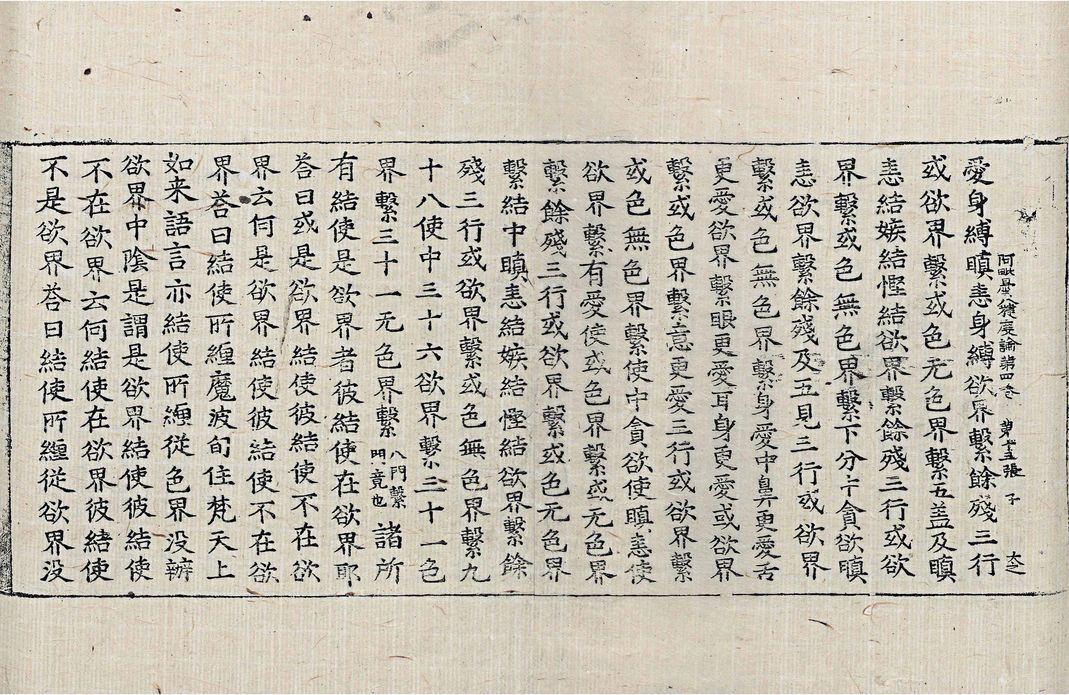 阿毗曇八犍度論第四卷 第十五張 子
大之
愛身縛瞋恚身縛欲界繫餘殘三行
或欲界繫或色无色界繫五盖及瞋
恚結嫉結慳結欲界繫餘殘三行或欲
界繫或色無色界繫下分中貪欲瞋
恚欲界繫餘殘及五見三行或欲界
繫或色無色界繫身愛中鼻更愛舌
更愛欲界繫眼更愛耳身更愛或欲界
繫或色界繫意更愛三行或欲界繫
或色無色界繫使中貪欲使瞋恚使
欲界繫有愛使或色界繫或无色界
繫餘殘三行或欲界繫或色无色界
繫結中瞋恚結嫉結慳結欲界繫餘
殘三行或欲界繫或色無色界繫九
十八使中三十六欲界繫三十一色
界繫三十一无色界繫 八門繫門竟也 諸所
有結使是欲界者彼結使在欲界耶
荅曰或是欲界結使彼結使不在欲
界云何是欲界結使彼結使不在欲
界荅曰結使所纏魔波旬住梵天上
如来語言亦結使所纏從色界没辨
欲界中陰是謂是欲界結使彼結使
不在欲界云何結使在欲界彼結使
不是欲界荅曰結使所纏從欲界没